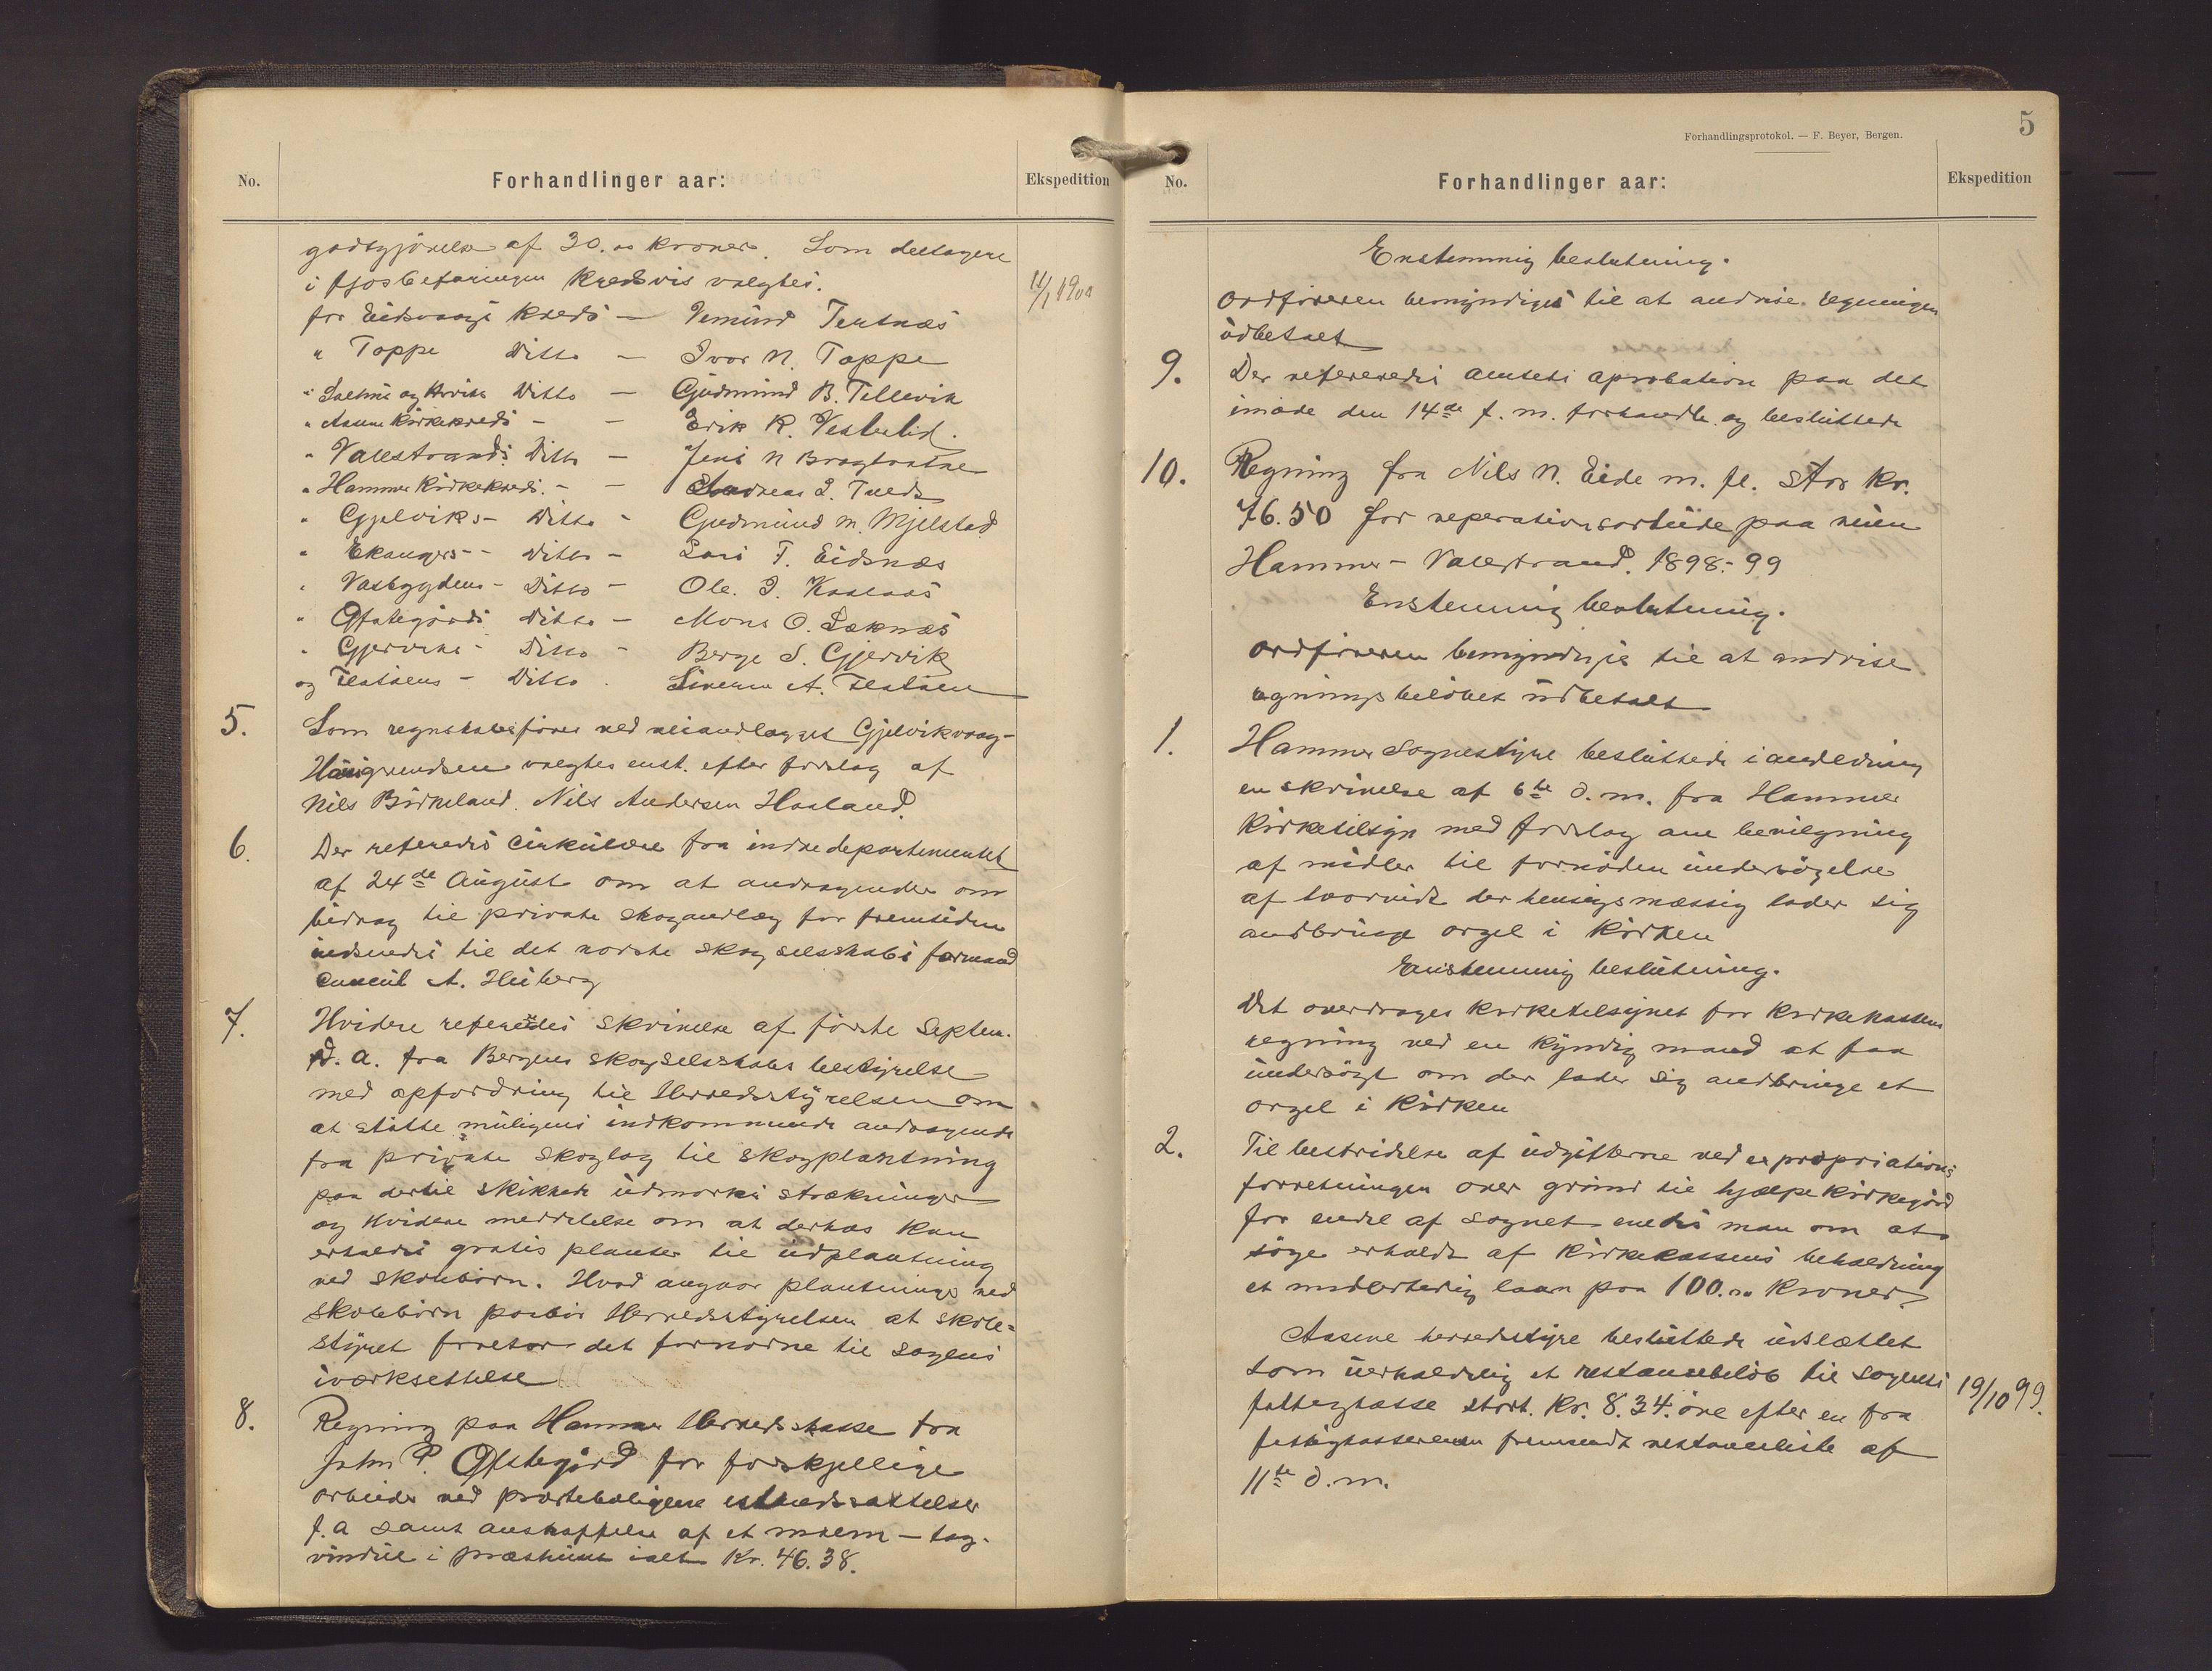 No.
Forhandlinger aar:
Ekspedition
godtgjörelse af 30.00 kroner. Som deltagere
i fjösbefaringen kredsvis valgtes.
11/1 1900
for Eidsvaags kreds — Vemund Tertnæs
" Toppe Ditto — Ivar N. Toppe
" Salhus og Hordvik Ditto — Gudmund B. Tellevik
" Aasene Kirkekreds — — Erik R. Vesterlid.
" Valestrands Ditto — Jens N
" Hammer Kirkekreds. — — Andreas I. Tveds
" Gjelviks — Ditto — Gudmund M. Mjelstad
" Ekangers — Ditto — Lars T. Eidsnæs
" Vasbygdens — Ditto — Ole. I.
" Ofstegårds Ditto — Mons O. Löknæs
" Gjerviks — Ditto — Berge S. Gjervik
og Flatöens — Ditto. A. Flatöen
5.
Som regnskabsförer ved veianlægget Gjelvikvaag-
valgtes enst. efter forslag af
Nils Birkeland. Nils Andersen Haaland.
6.
Der referedes Cirkulære fra indredepartementet
af 24de August om at andragender om
bidrag til private skoganlæg for fremtiden
indsendes til det norske skogselskabs formand
Consul A. Heiberg
7.
Hvidere referedes skrivelse af förste Septem.
d. a. fra Bergens skogselskabs bestyrelse
med opfordring til Herredsstyrelsen om
at stötte muligens indkommende andragende
fra private skoglag til skogplantning
paa dertil skikkede udmarks strækninger
og Hvidere meddelelse om at derhos kan
erholdes gratis planter til udplantning
ved skolebörn. Hvad angaar plantninge ved
skolebörn paabör Herredsstyrelsen at skole=
styret foretar det fornödne til sagens
iværksettelse
8.
Regning paa Hammer Herredskasse fra
John P. Ofstegård for forskjellige
arbeider ved presteboligens istandssættelse
f. a samt anskaffelse af et — tag-
vindue i præstehuset ialt Kr. 46.38.
Forhandlingsprotokol. — F. Beyer, Bergen.
5
No.
Forhandlinger aar:
Ekspedition
Enstemmig beslutning.
Ordföreren bemyndiges til at anvise regningen
udbetalt
9.
Der refereredes amtets aprobation paa det
imöde den 14de f. m. forhandle og besluttede
10.
Regning fra Nils N. Eide m. fl. stor kr.
76.50 for reperationsarbeide paa veien
Hammer — Valestrand. 1898-99
Enstemmig beslutning.
Ordföreren bemyndiges til at andvise
regningsbelöbet udbetalt
1.
Hammer Sognestyre besluttede i andledning
en skrivelse af 6te d. m. fra Hammer
Kirketilsyn med forslag om bevilgning
af midler til fornöden undersögelse
af hvorvidt der hensigsmæssig lader sig
andbringe orgel i Kirken
Enstemmig beslutning.
Det overdrages kirketilsynet for kirkekassens
regning ved en kyndig mand at faa
undersögt om der lader sig andbringe et
orgel i Kirken
2.
Til bestridelse af udgifterne ved expropriations
forretningen over grund til hjælpekirkegård
for endel af sognet enedes man om at
söge erholdt af Kirkekassens beholdning
et midlertidig laan paa 100.00 Kroner
Aasene herredsstyre besluttede udslættet
som uerholdelig et restancebelöb til sognets
fattigkasse stort. Kr. 8.34. öre efter en fra
fattigkassereren fremsendt restanceliste af
11te d. m.
19/10 99.